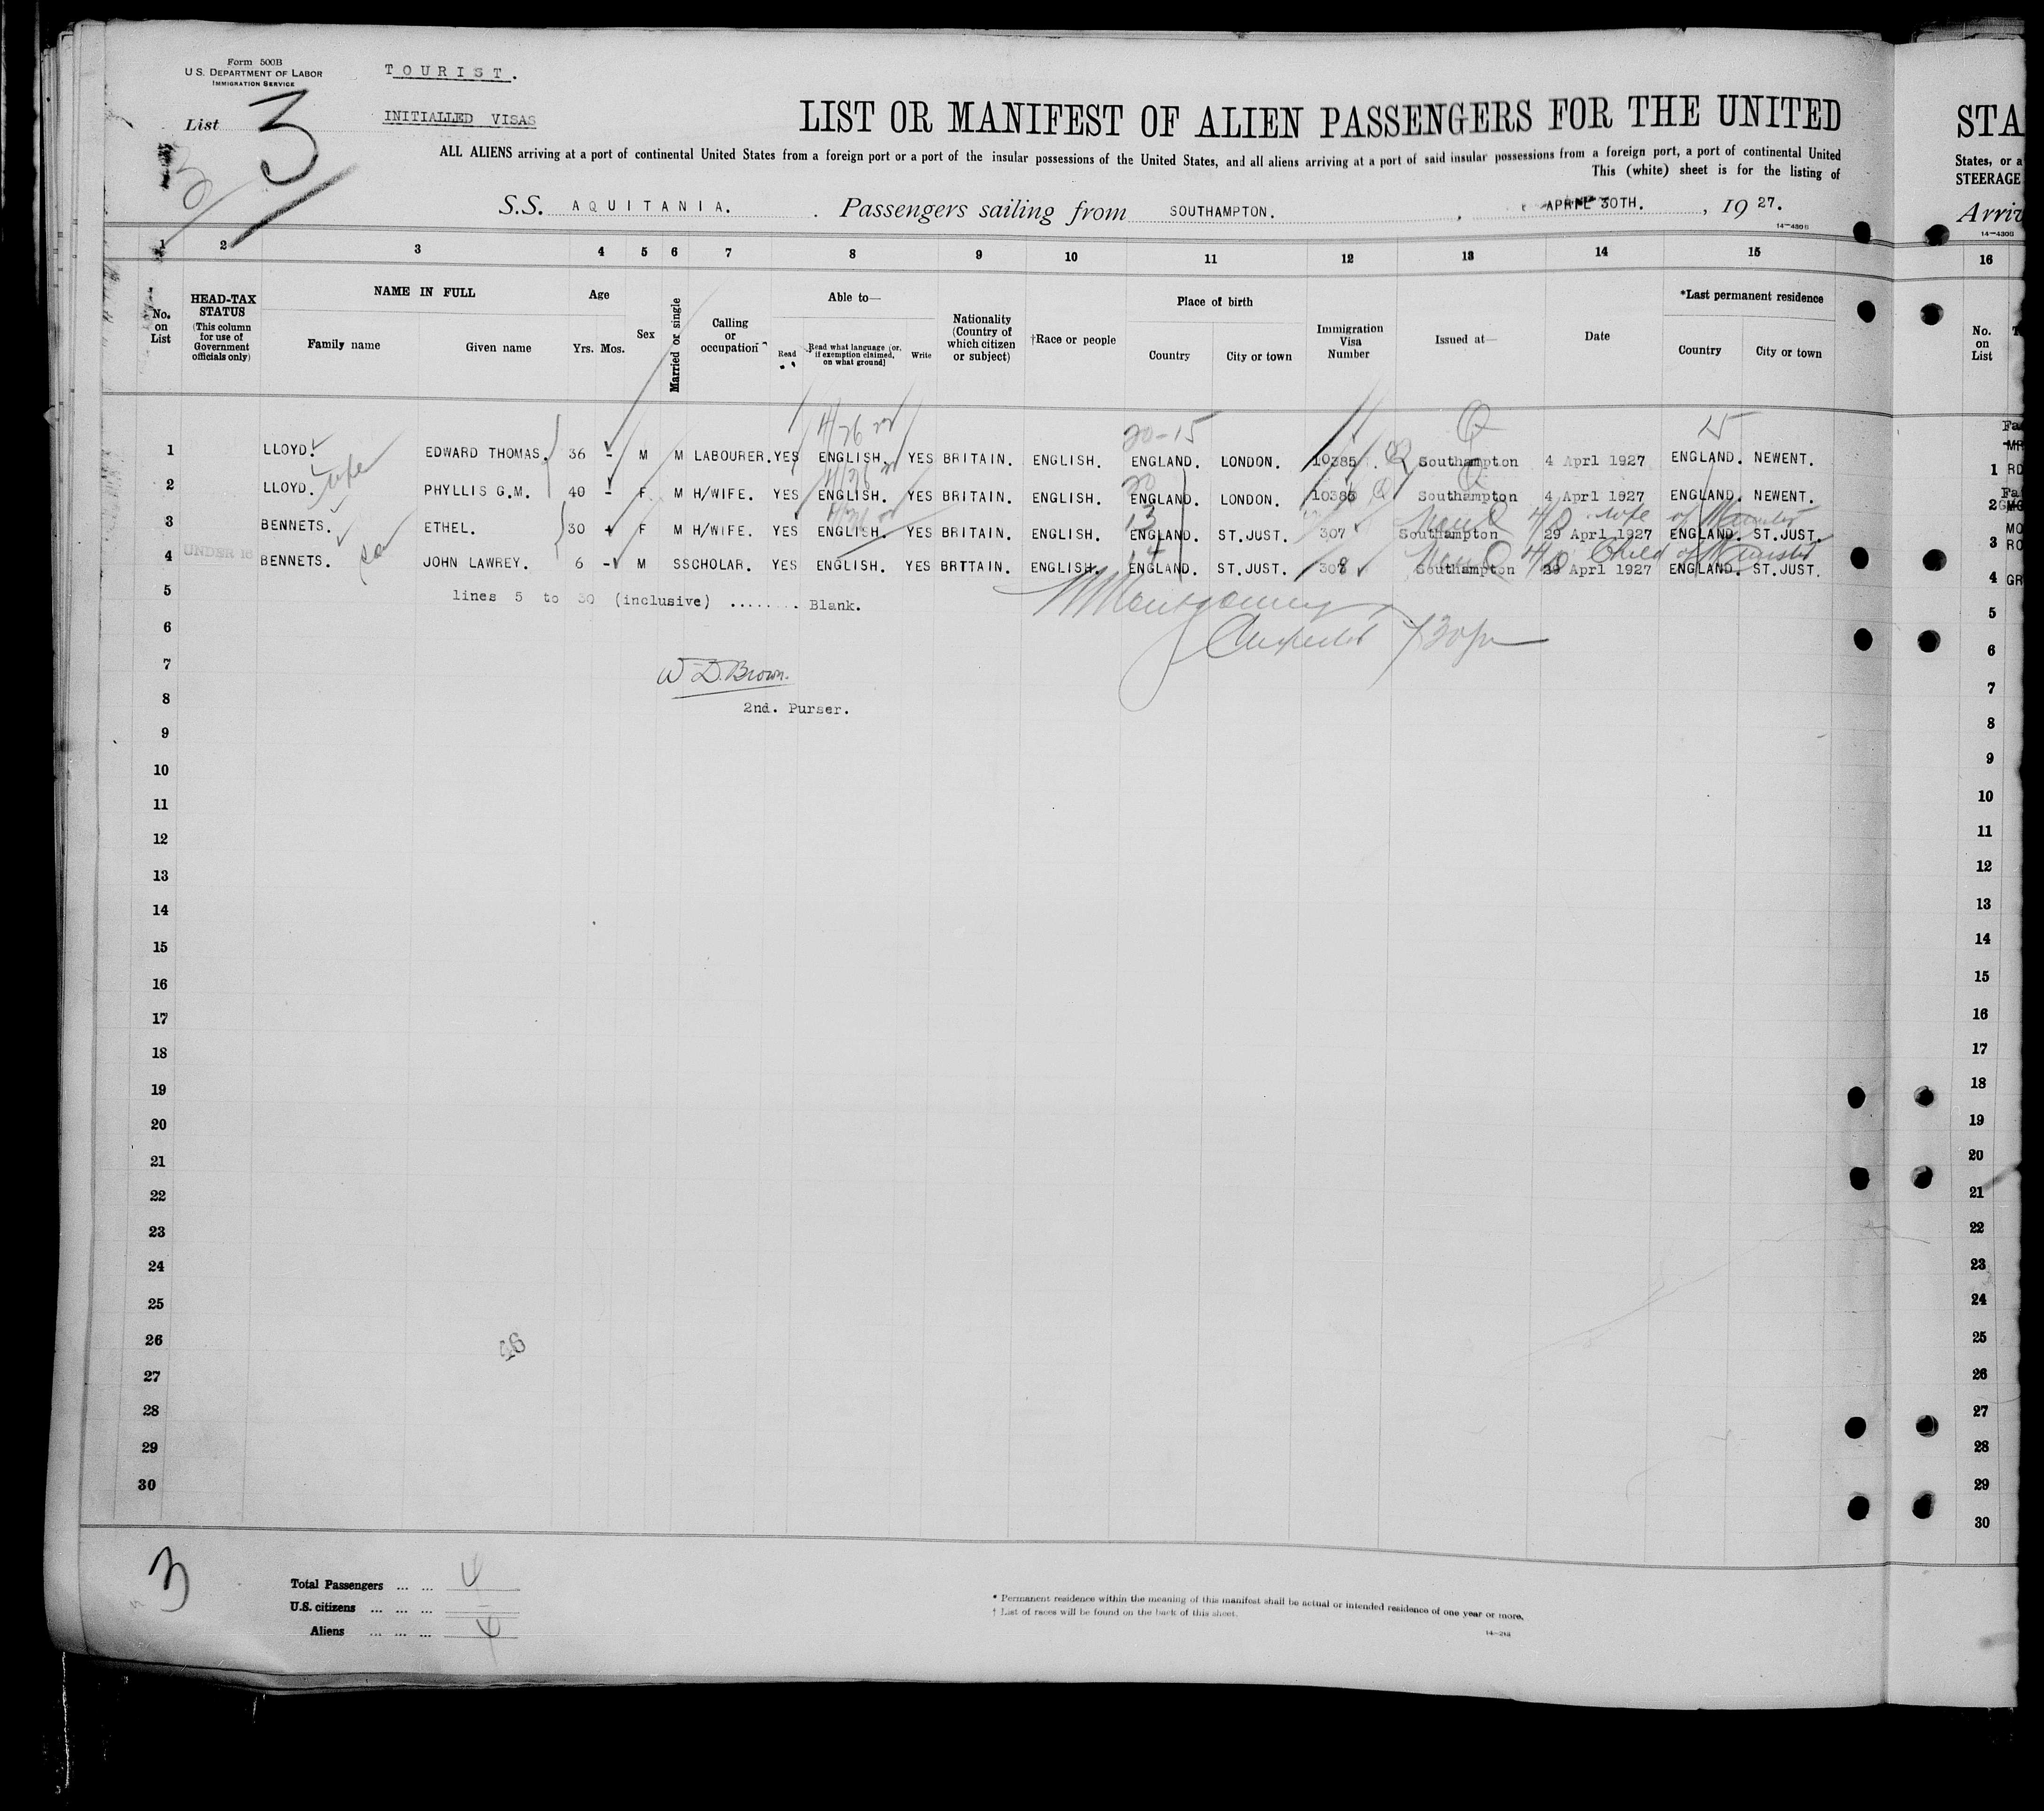 Form 500B
U.S. DEPARTMENT OF LABOR
IMMIGRATION SERVICE
TOURIST.
INITIALLED VISAS
List 3
3
LIST OR MANIFEST OF ALIEN PASSENGERS FOR THE UNITED
STA
ALL ALIENS arriving at a port of continental United States from a foreign port or a port of the insular possessions of the United States, and all aliens arriving at a port of said insular possessions from a foreign port, a port of continental United
States, or a
This (white) sheet is for the listing of
STEERAGE
S.S. AQUITANIA. Passengers sailing from SOUTHAMPTON. , APRIL 30TH. , 19 27.
Arriv
14-4306
14-4306
1 2 3 4 5 6 7 8 9 10 11 12 13 14 15 16
No. on List
HEAD-TAX STATUS (This column for use of Government officials only)
NAME IN FULL
Family name
Given name
Age
Yrs. Mos.
Sex
Married or single
Calling or occupation
Able to—
Read
Read what language [or, if exemption claimed, on what ground]
Write
Nationality (Country of which citizen or subject)
†Race or people
Place of birth
Country
City or town
Immigration Visa Number
Issued at—
Date
*Last permanent residence
Country
City or town
No. on List
4/26
20-15
Q
15
1 LLOYD. EDWARD THOMAS. 36 - M M LABOURER. YES ENGLISH. YES BRITAIN. ENGLISH. ENGLAND. LONDON. 10385 Q Southampton 4 Aprl 1927 ENGLAND. NEWENT. 1
wife
2 LLOYD. PHYLLIS G.M. 40 - F M H/WIFE. YES ENGLISH. YES BRITAIN. ENGLISH. ENGLAND. LONDON. 10386 Q Southampton 4 Aprl 1927 ENGLAND. NEWENT. 2
4/8 wife of Minister
3 BENNETS. ETHEL. 30 F M H/WIFE. YES ENGLISH. YES BRITAIN. ENGLISH. ENGLAND. ST.JUST. 307 Southampton 29 Aprl 1927 ENGLAND. ST.JUST. 3
son
4/8 Child of Minister
4 UNDER 16 BENNETS. JOHN LAWREY. 6 - M S SCHOLAR. YES ENGLISH. YES BRTTAIN. ENGLISH. ENGLAND. ST.JUST. 308 Southampton 29 Aprl 1927 ENGLAND. ST.JUST. 4 GR
5 lines 5 to 30 (inclusive) ........ Blank. 5
Montgomery
6 6
W D. Brown.
7 7
2nd. Purser.
8 8
9 9
10 10
11 11
12 12
13 13
14 14
15 15
16 16
17 17
18 18
19 19
20 20
21 21
22 22
23 23
24 24
25 25
26 26
27 27
28 28
29 29
30 30
3
Total Passengers ... ... 4
U.S. citizens ... ... ... —
Aliens ... ... ... 4
* Permanent residence within the meaning of this manifest shall be actual or intended residence of one year or more.
† List of races will be found on the back of this sheet.
14-248